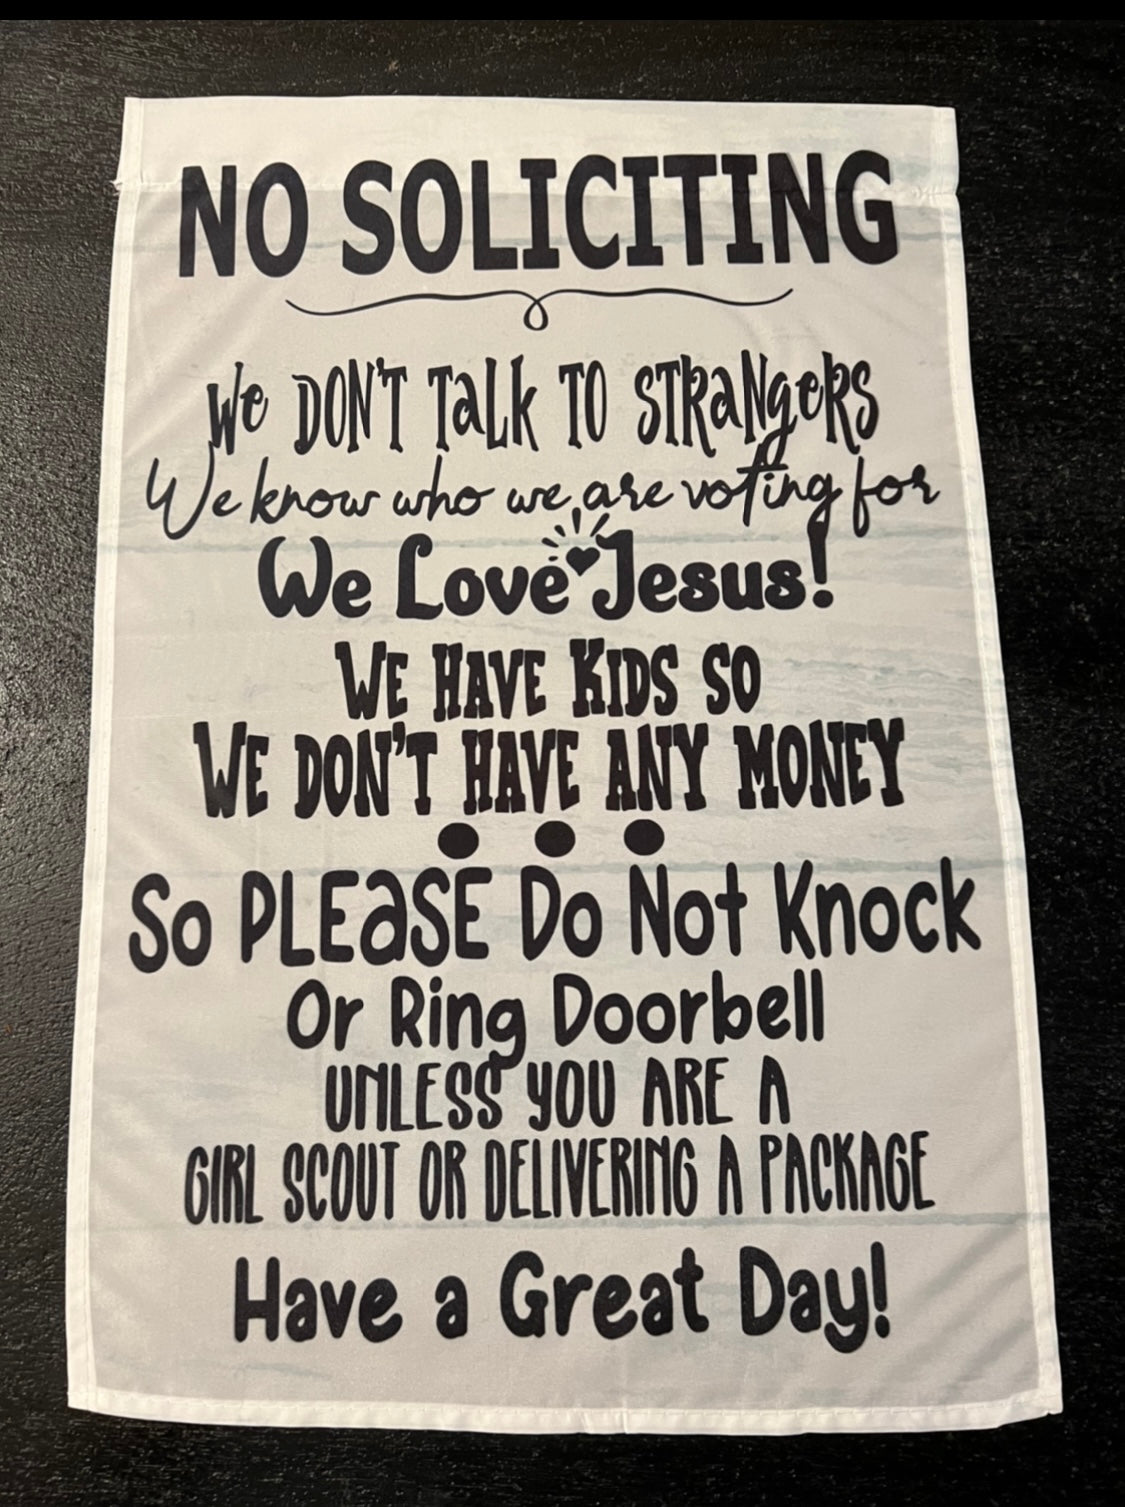 NO SOLICITING
We DON'T TaLk TO STRaNgeRS
We know who we are voting for
We Love Jesus!
WE HAVE KIDS SO
WE DON'T HAVE ANY MONEY
So PLEaSE Do Not Knock
Or Ring Doorbell
UNLESS YOU ARE A
GIRL SCOUT OR DELIVERING A PACKAGE
Have a Great Day!